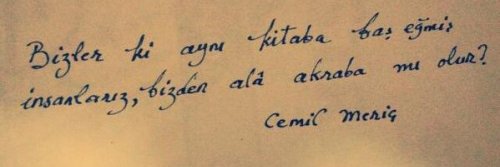 Bizler ki aynı kitaba baş eğmiş
insanlarız, bizden alâ akraba mı olur?
Cemil Meriç